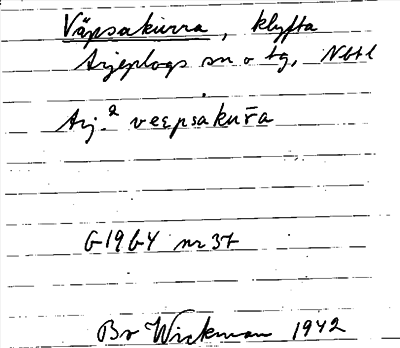 Väpsakurra, klyfta
Arjeplogs sn o tg, Nbtl
Arj.² veεpsakur̄a
G1964 nr 37
Bo Wickman 1942